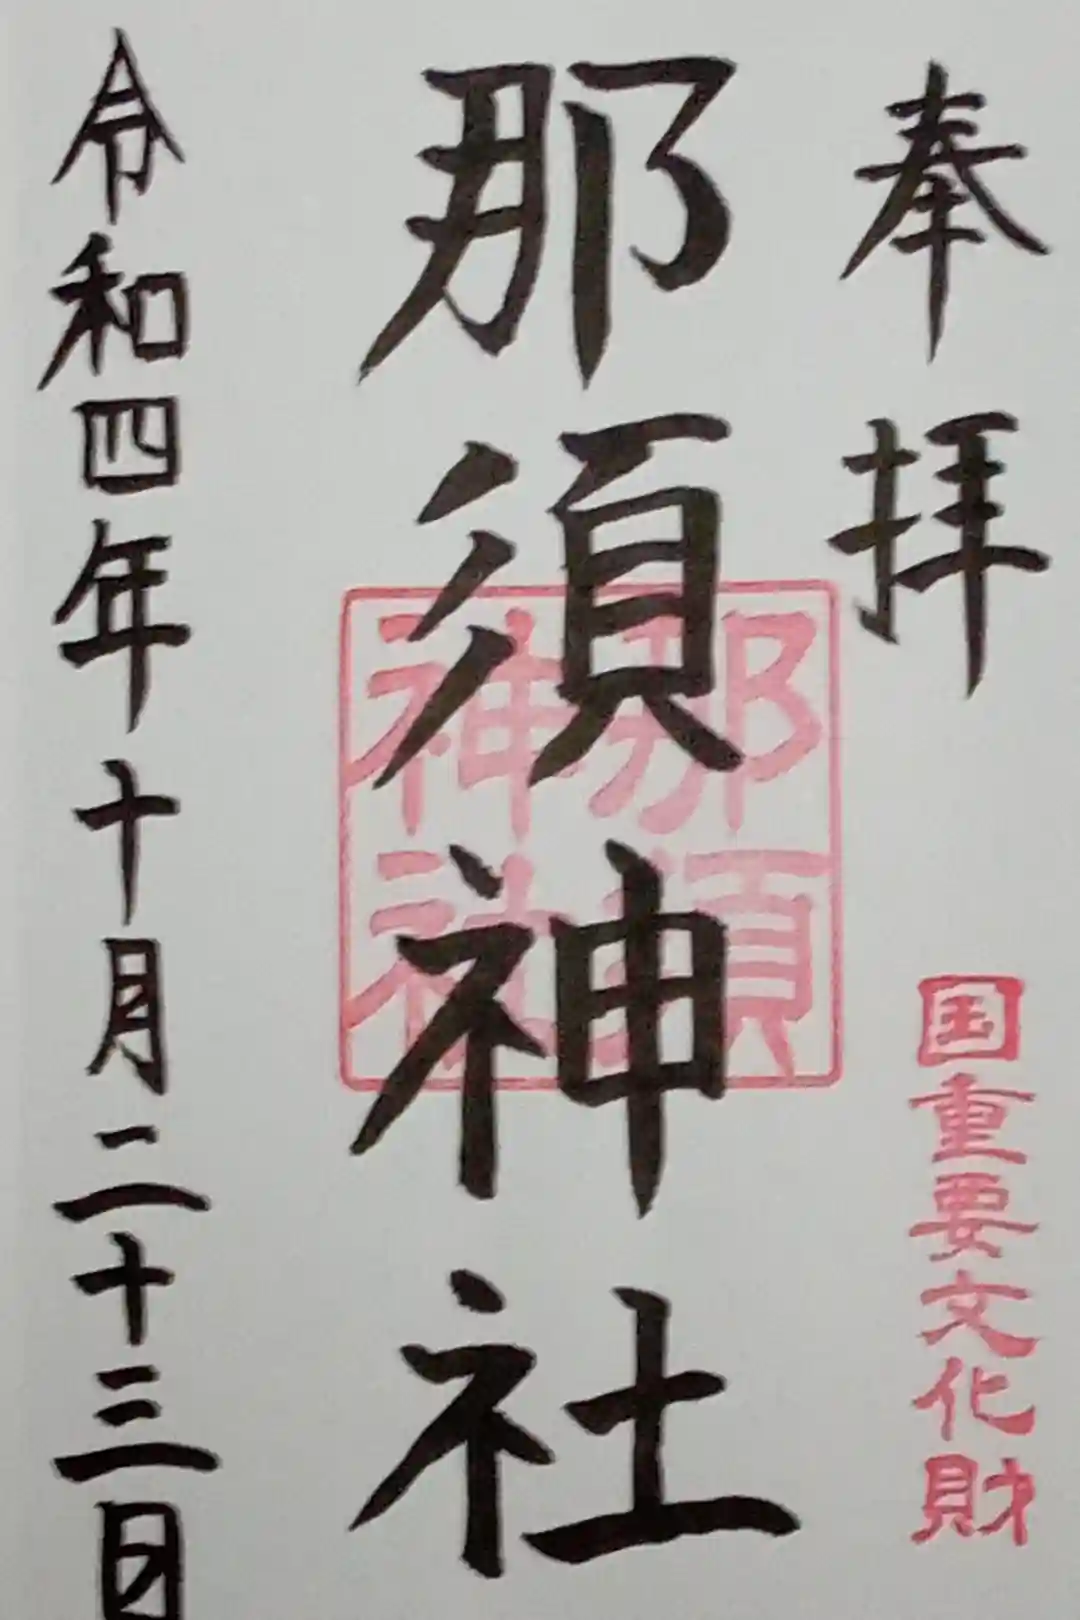 奉拝
国重要文化財
那須神社
那須
神社
令和四年十月二十三日